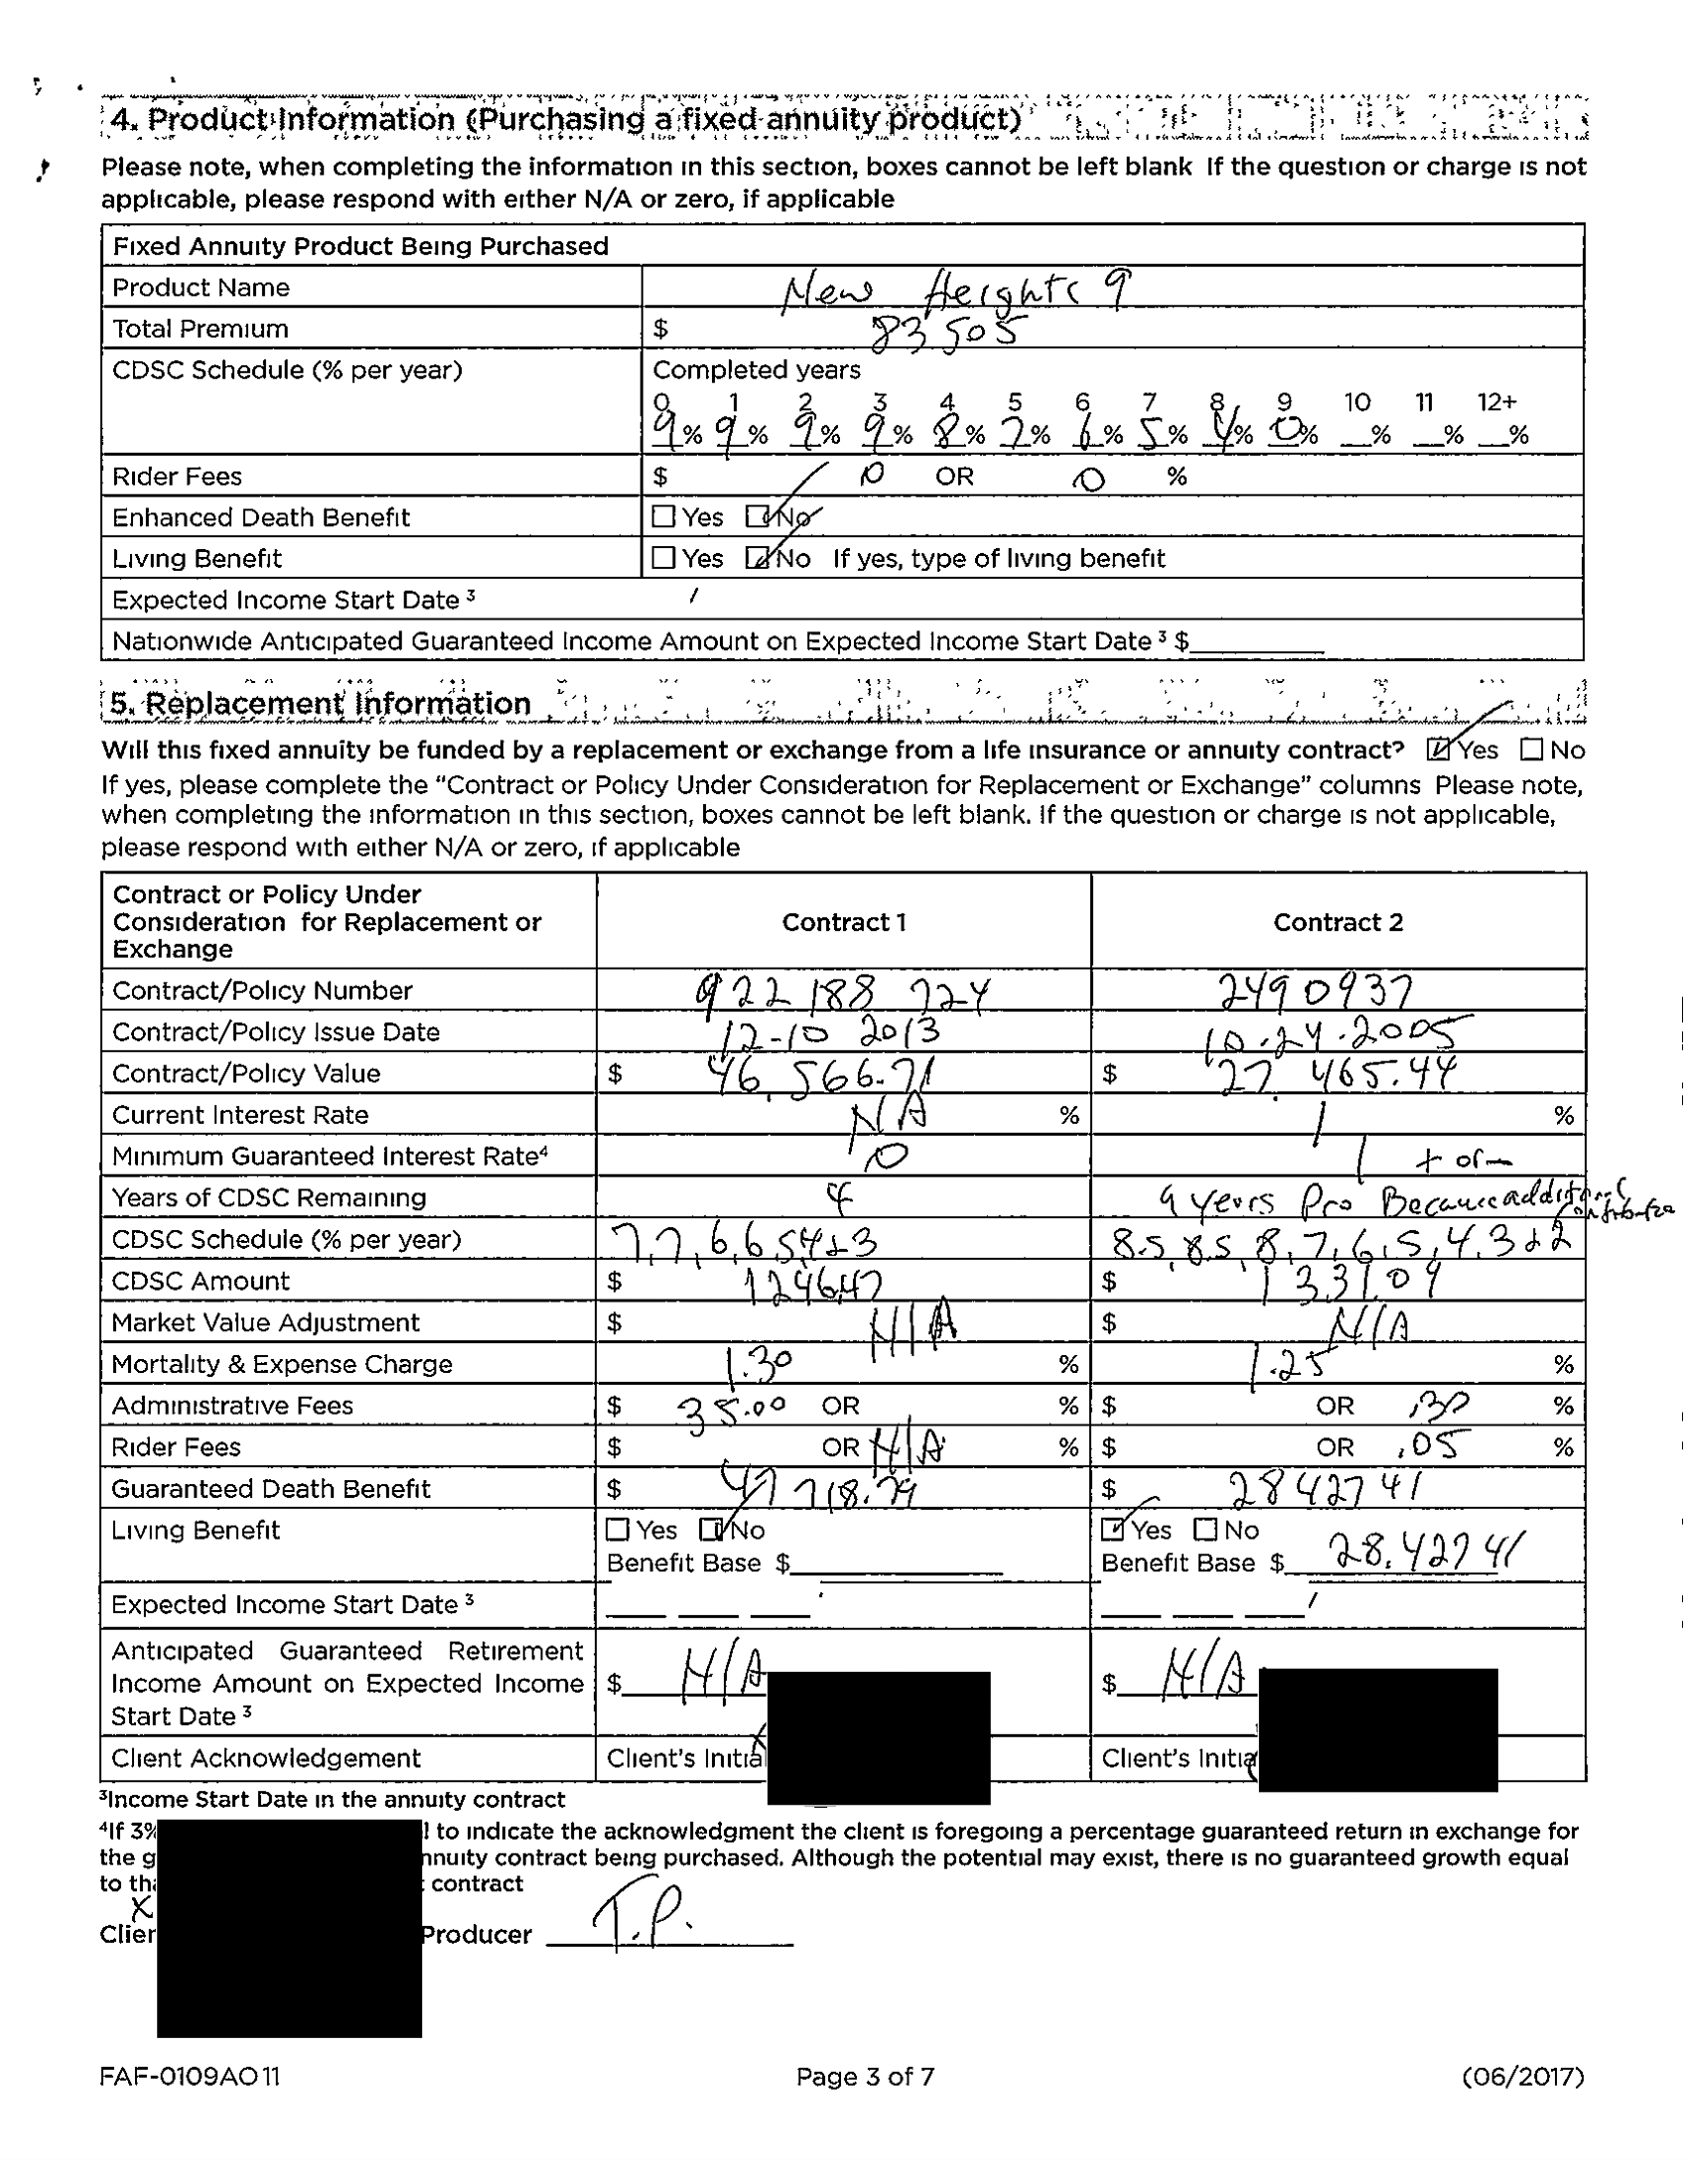 4. Product Information (Purchasing a fixed annuity product)
Please note, when completing the information in this section, boxes cannot be left blank If the question or charge is not
applicable, please respond with either N/A or zero, if applicable
Fixed Annuity Product Being Purchased
Product Name New Heights 9
Total Premium $ 83,505
CDSC Schedule (% per year) Completed years
0 1 2 3 4 5 6 7 8 9 10 11 12+
9% 9% 9% 9% 8% 7% 6% 5% 4% 0% % % %
Rider Fees $ 0 OR 0 %
Enhanced Death Benefit Yes No
Living Benefit Yes No If yes, type of living benefit
Expected Income Start Date 3
Nationwide Anticipated Guaranteed Income Amount on Expected Income Start Date 3 $
5. Replacement Information
Will this fixed annuity be funded by a replacement or exchange from a life insurance or annuity contract? Yes No
If yes, please complete the “Contract or Policy Under Consideration for Replacement or Exchange” columns Please note,
when completing the information in this section, boxes cannot be left blank. If the question or charge is not applicable,
please respond with either N/A or zero, if applicable
Contract or Policy Under
Consideration for Replacement or
Exchange
Contract 1 Contract 2
Contract/Policy Number 922 188 724 2490937
Contract/Policy Issue Date 12-10 2013 10.24.2005
Contract/Policy Value $ 46,566.71 $ 27,465.44
Current Interest Rate N/A % 1 %
Minimum Guaranteed Interest Rate4 0 1 + or -
Years of CDSC Remaining 4 9 years Pro Because additional
CDSC Schedule (% per year) 7,7,6,6,5,4&3 8.5,8.5,8,7,6,5,4,3&2
CDSC Amount $ 1246.47 $ 1331.09
Market Value Adjustment $ N/A $ N/A
Mortality & Expense Charge 1.30 % 1.25 %
Administrative Fees $ 35.00 OR % $ OR .30 %
Rider Fees $ OR N/A % $ OR .05 %
Guaranteed Death Benefit $ 47718.79 $ 2842741
Living Benefit Yes No Yes No
Benefit Base $ Benefit Base $ 28,42741
Expected Income Start Date 3
Anticipated Guaranteed Retirement
Income Amount on Expected Income $ N/A $ N/A
Start Date 3
Client Acknowledgement Client's Initia Client's Initia
3Income Start Date in the annuity contract
4If 3% to indicate the acknowledgment the client is foregoing a percentage guaranteed return in exchange for
the g nnuity contract being purchased. Although the potential may exist, there is no guaranteed growth equal
to tha contract
X
Clier Producer T.P.
FAF-0109AO 11 Page 3 of 7 (06/2017)